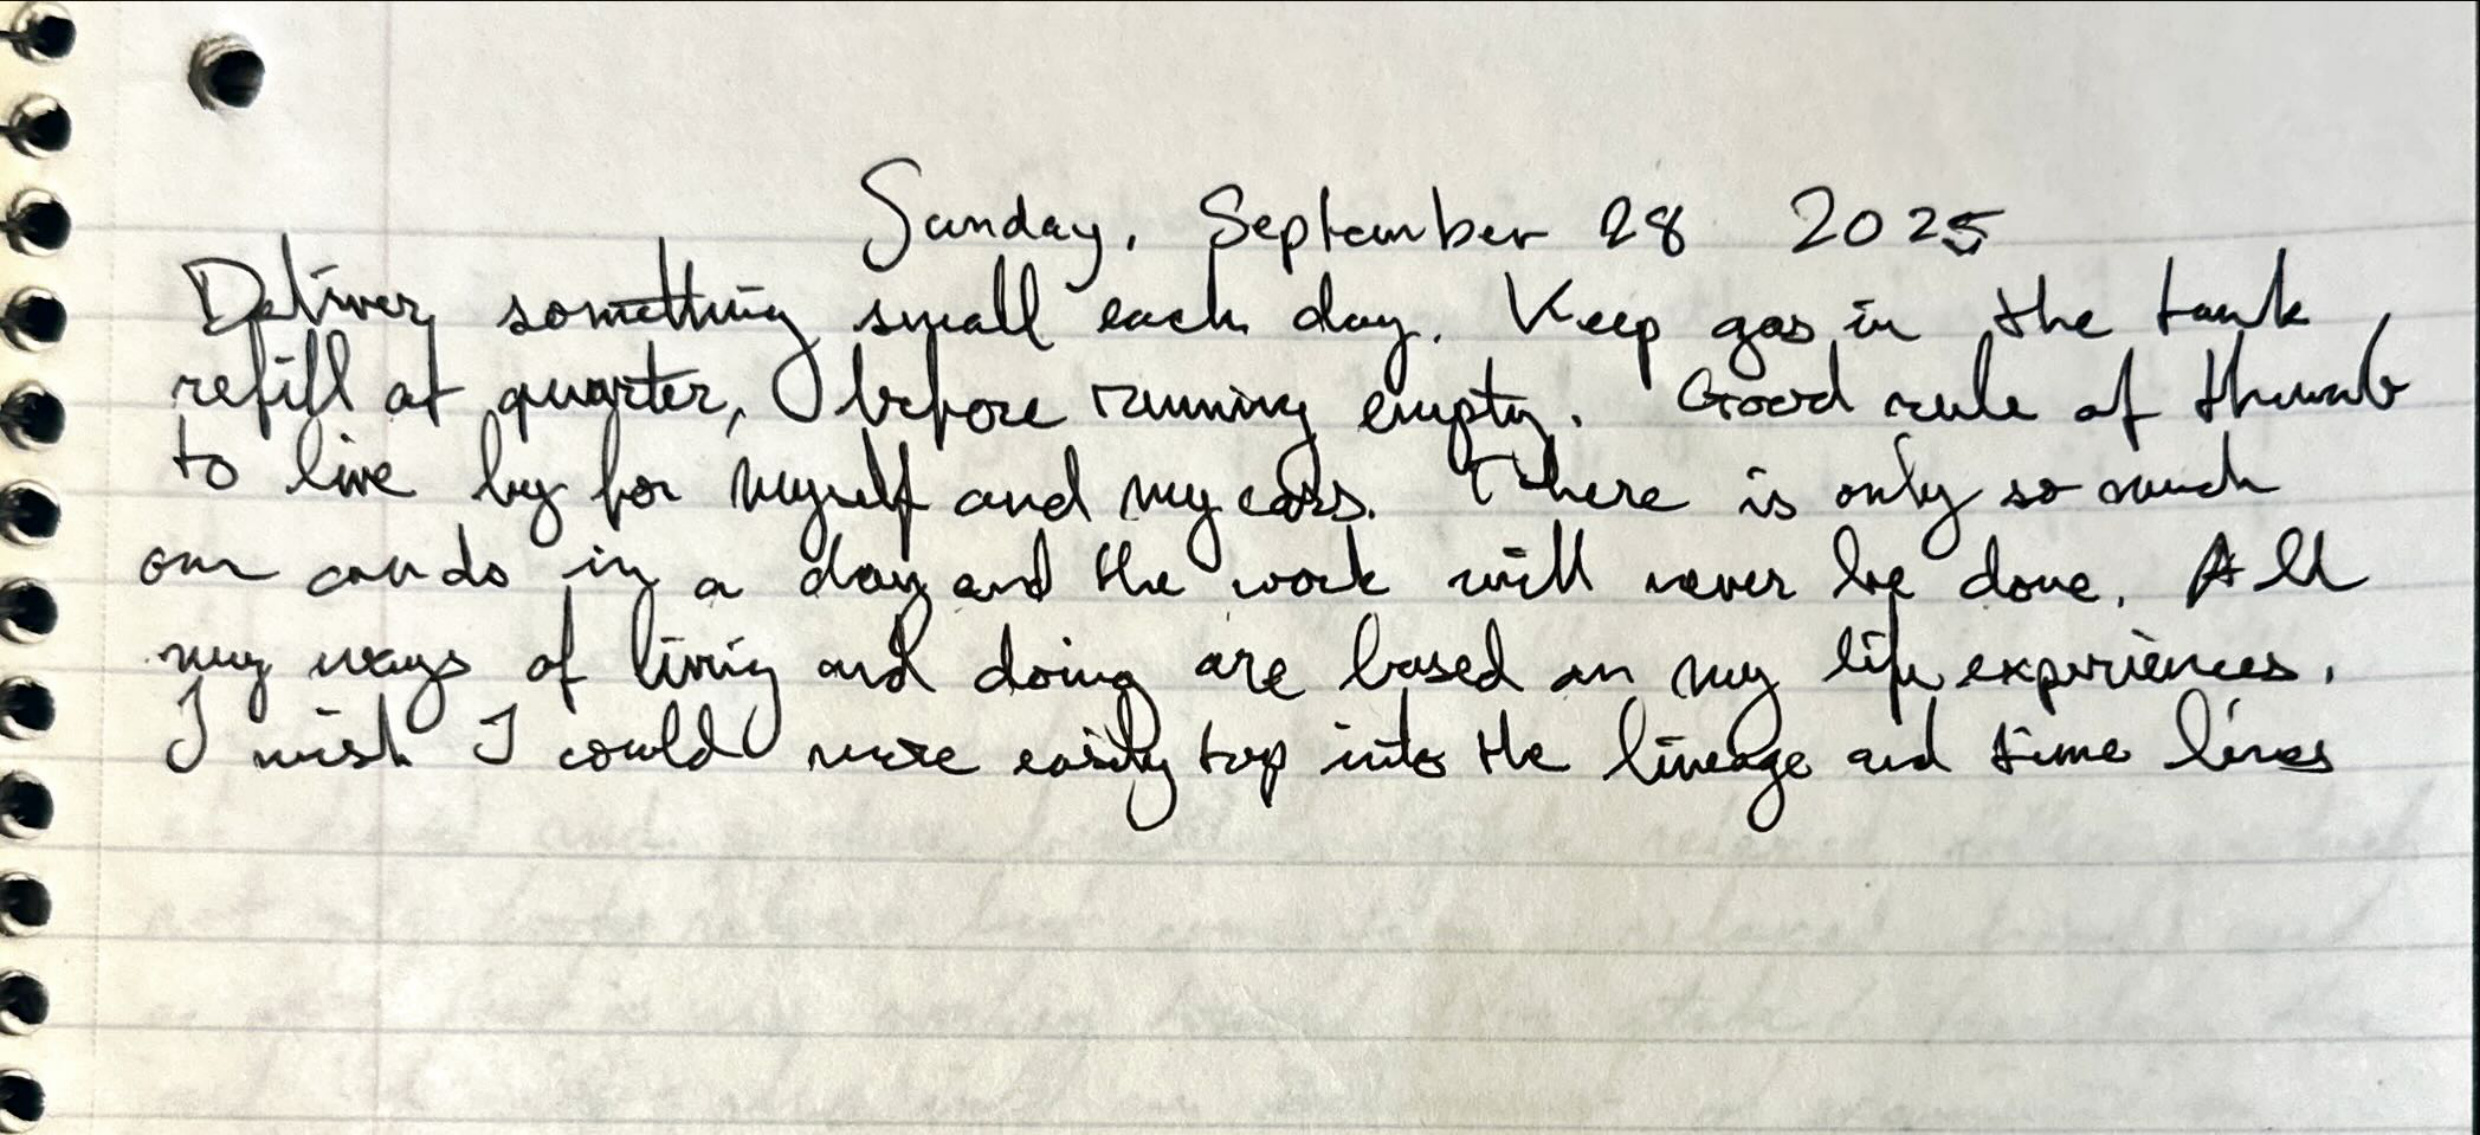 Sunday, September 28 2025
Deliver something small each day. Keep gas in the tank,
refill at quarter, before running empty. Good rule of thumb
to live by for myself and my cars. There is only so much
one can do in a day and the work will never be done. All
my ways of living and doing are based on my life experiences.
I wish I could more easily tap into the lineage and time lines